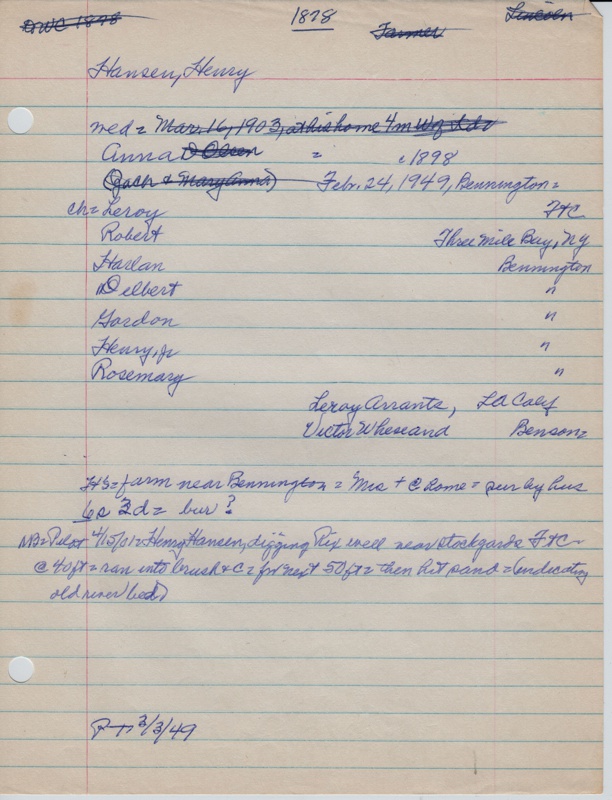 DWC 1898 1878 Farmer Lincoln
Hansen, Henry
med = Mar. 16, 1903, at his home 4m W of
Anna D Olsen = c1898
(Zach & Mary Anna) Febr. 24, 1949, Bennington =
ch = Leroy FtC
Robert Three Mile Bay, NY
Harlan Bennington
Delbert "
Gordon "
Henry, jr "
Rosemary "
Leroy Arrants, LA Calif
Victor Wheseand Benson =
HS = farm near Bennington = Mrs + @ Rome = sur by hus
6s 2d = bur?
NB = Pilot 4/15/01 = Henry Hansen, digging Rix well near stockyards FtC
@ 40 ft = ran into brush & C = for next 50 ft = then hit sand = (indicating
old river bed)
P-T 3/3/49